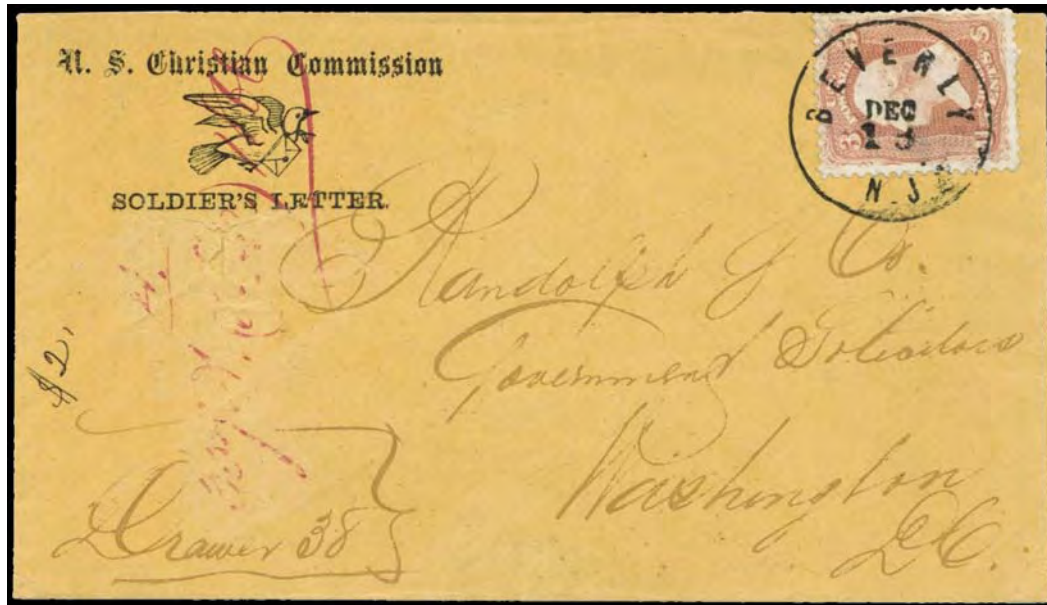 U. S. Christian Commission
SOLDIER'S LETTER.
BEVERLY
DEC
N.J.
3
Randolph & Co.
Government Solicitors
Washington
D.C.
$2.
Drawer 38